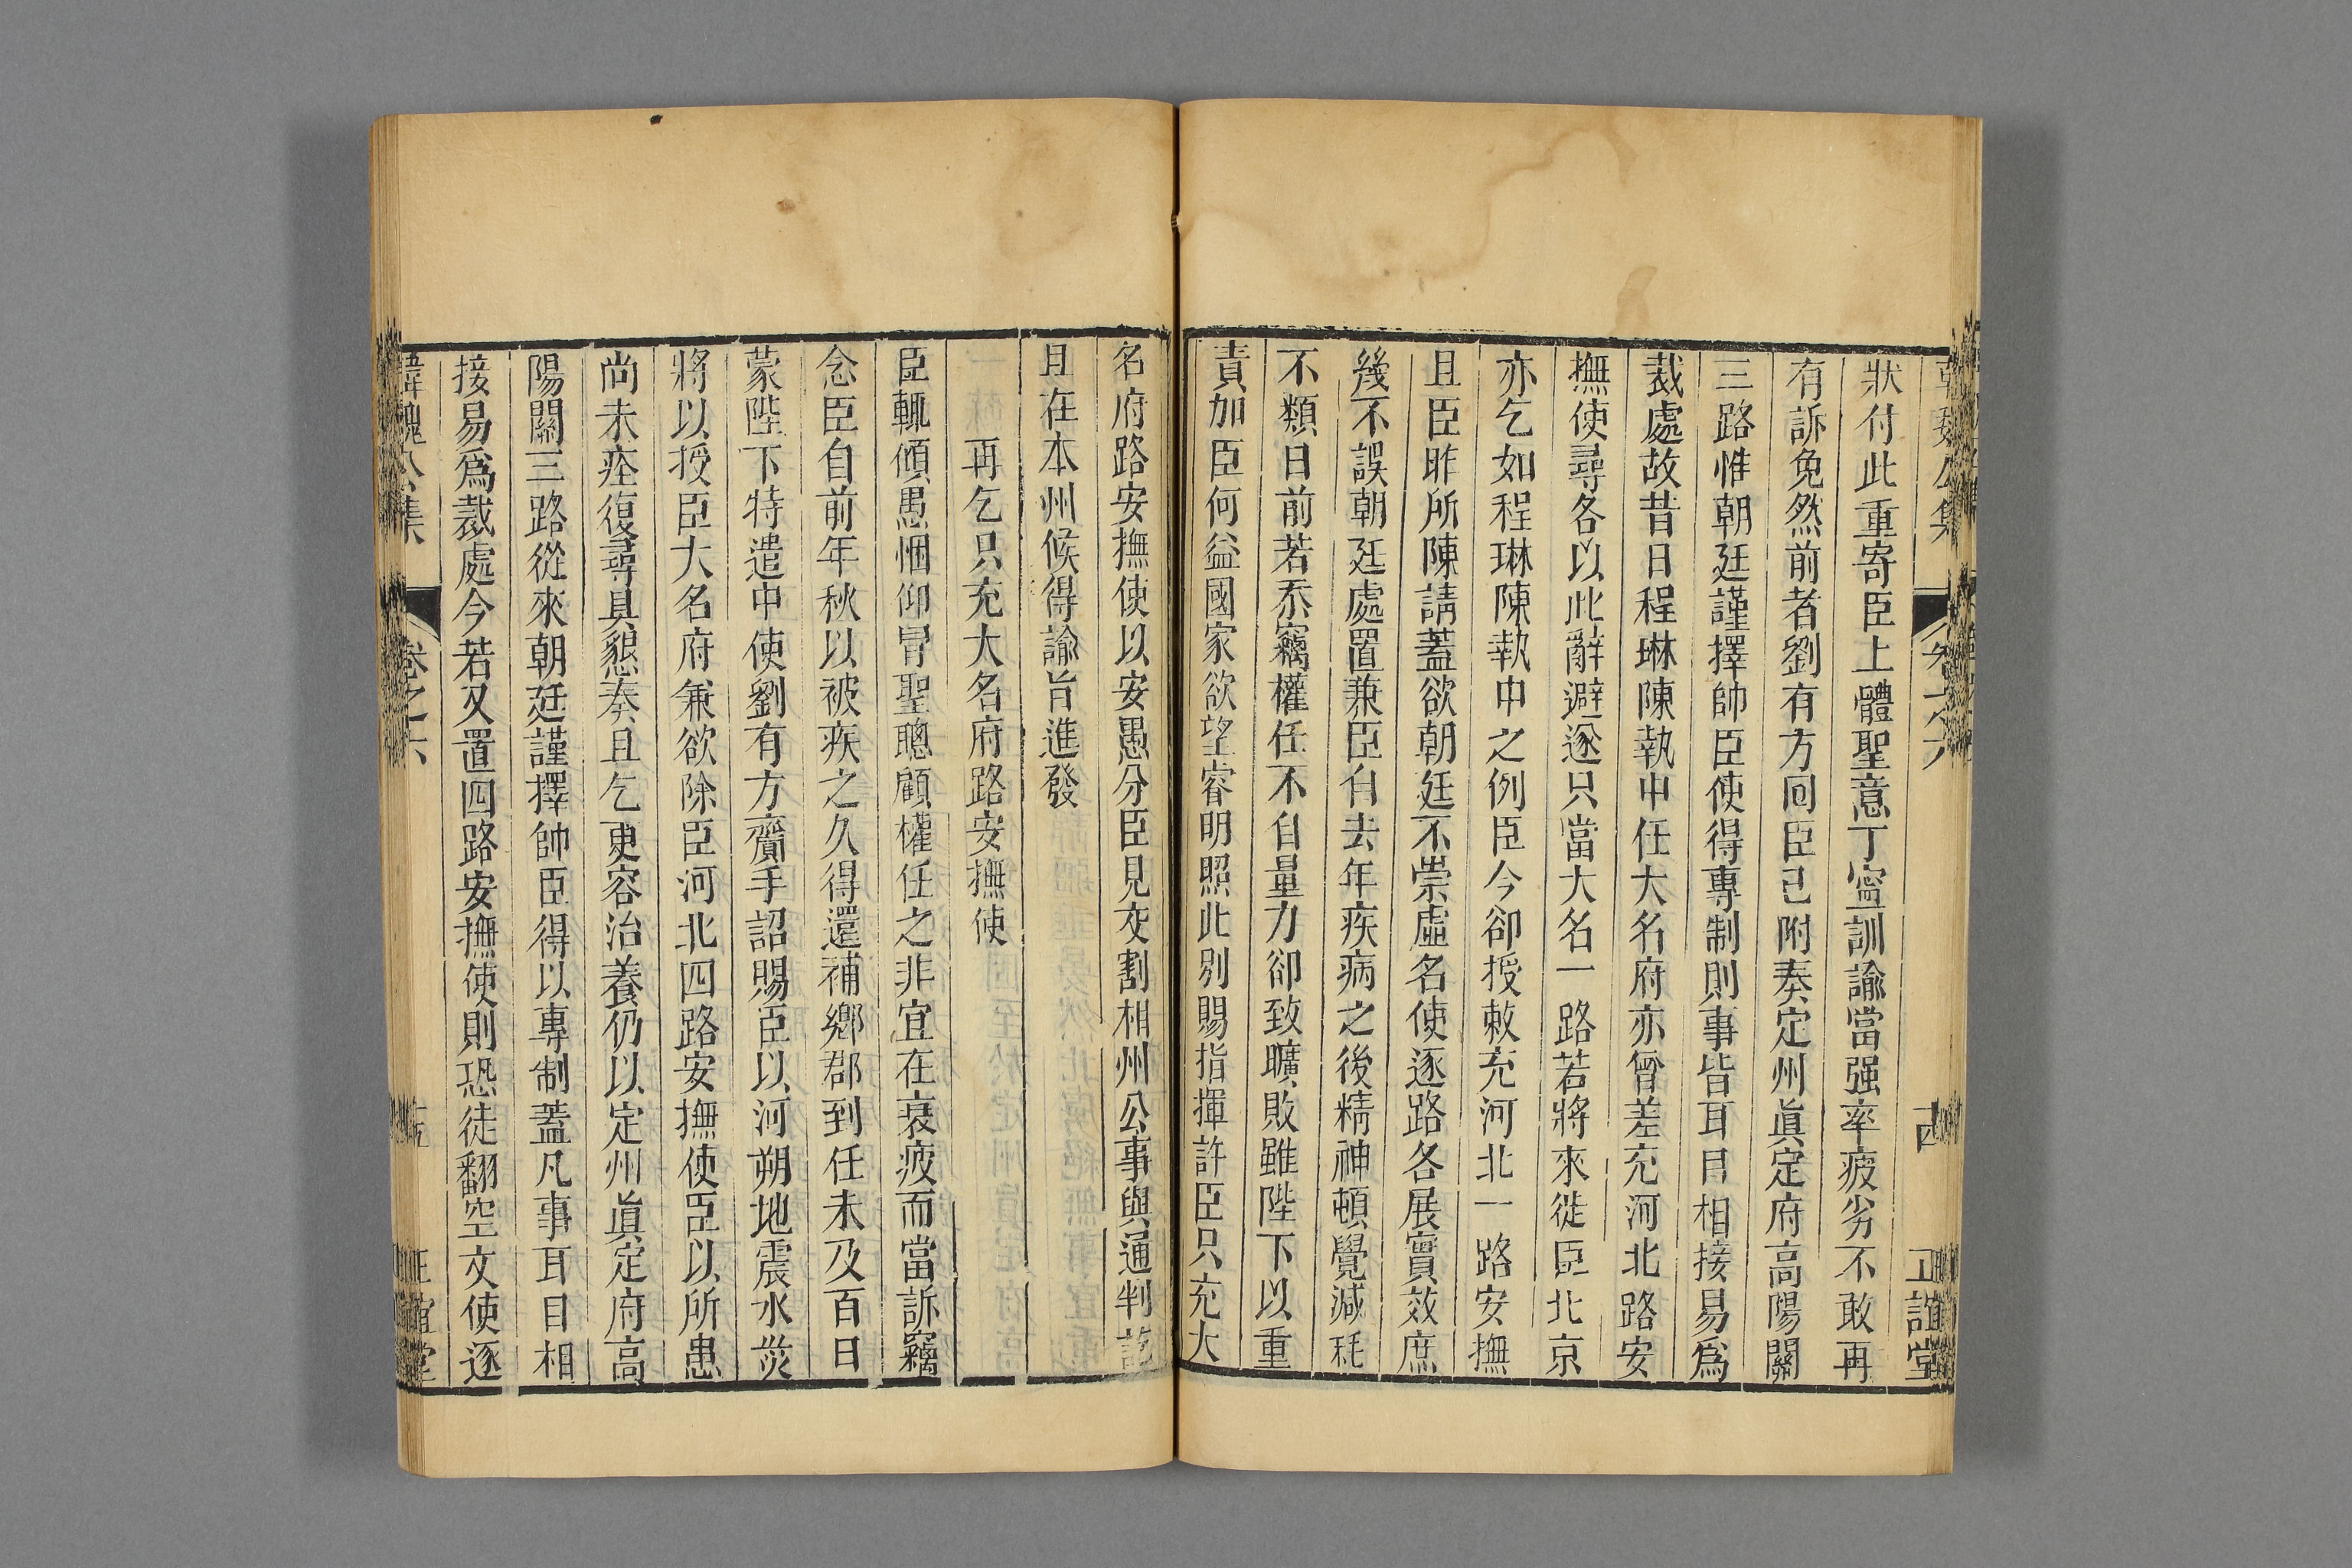 韓魏公集 卷之六 十四 正誼堂
狀付此重寄臣上體聖意丁寧訓諭當强率疲劣不敢再
有訴免然前者劉有方回臣已附奏定州眞定府高陽關
三路惟朝廷謹擇帥臣使得專制則事皆耳目相接易爲
裁處故昔日程琳陳執中任大名府亦曾差充河北路安
撫使尋各以此辭避逐只當大名一路若將來徙臣北京
亦乞如程琳陳執中之例臣今卻授敕充河北一路安撫
且臣昨所陳請蓋欲朝廷不崇虛名使逐路各展實效庶
幾不誤朝廷處置兼臣自去年疾病之後精神頓覺減耗
不類日前若忝竊權任不自量力卻致曠敗雖陛下以重
責加臣何益國家欲望睿明照此別賜指揮許臣只充大
名府路安撫使以安愚分臣見交割相州公事與通判訖
且在本州候得諭旨進發
再乞只充大名府路安撫使
臣輒傾愚悃仰冒聖聰顧權任之非宜在衰疲而當訴竊
念臣自前年秋以被疾之久得還補鄉郡到任未及百日
蒙陛下特遣中使劉有方齎手詔賜臣以河朔地震水災
將以授臣大名府兼欲除臣河北四路安撫使臣以所患
尚未痊復尋具懇奏且乞更容治養仍以定州眞定府高
陽關三路從來朝廷謹擇帥臣得以專制蓋凡事耳目相
接易爲裁處今若又置四路安撫使則恐徒翻空文使逐
韓魏公集 卷之六 十五 正誼堂